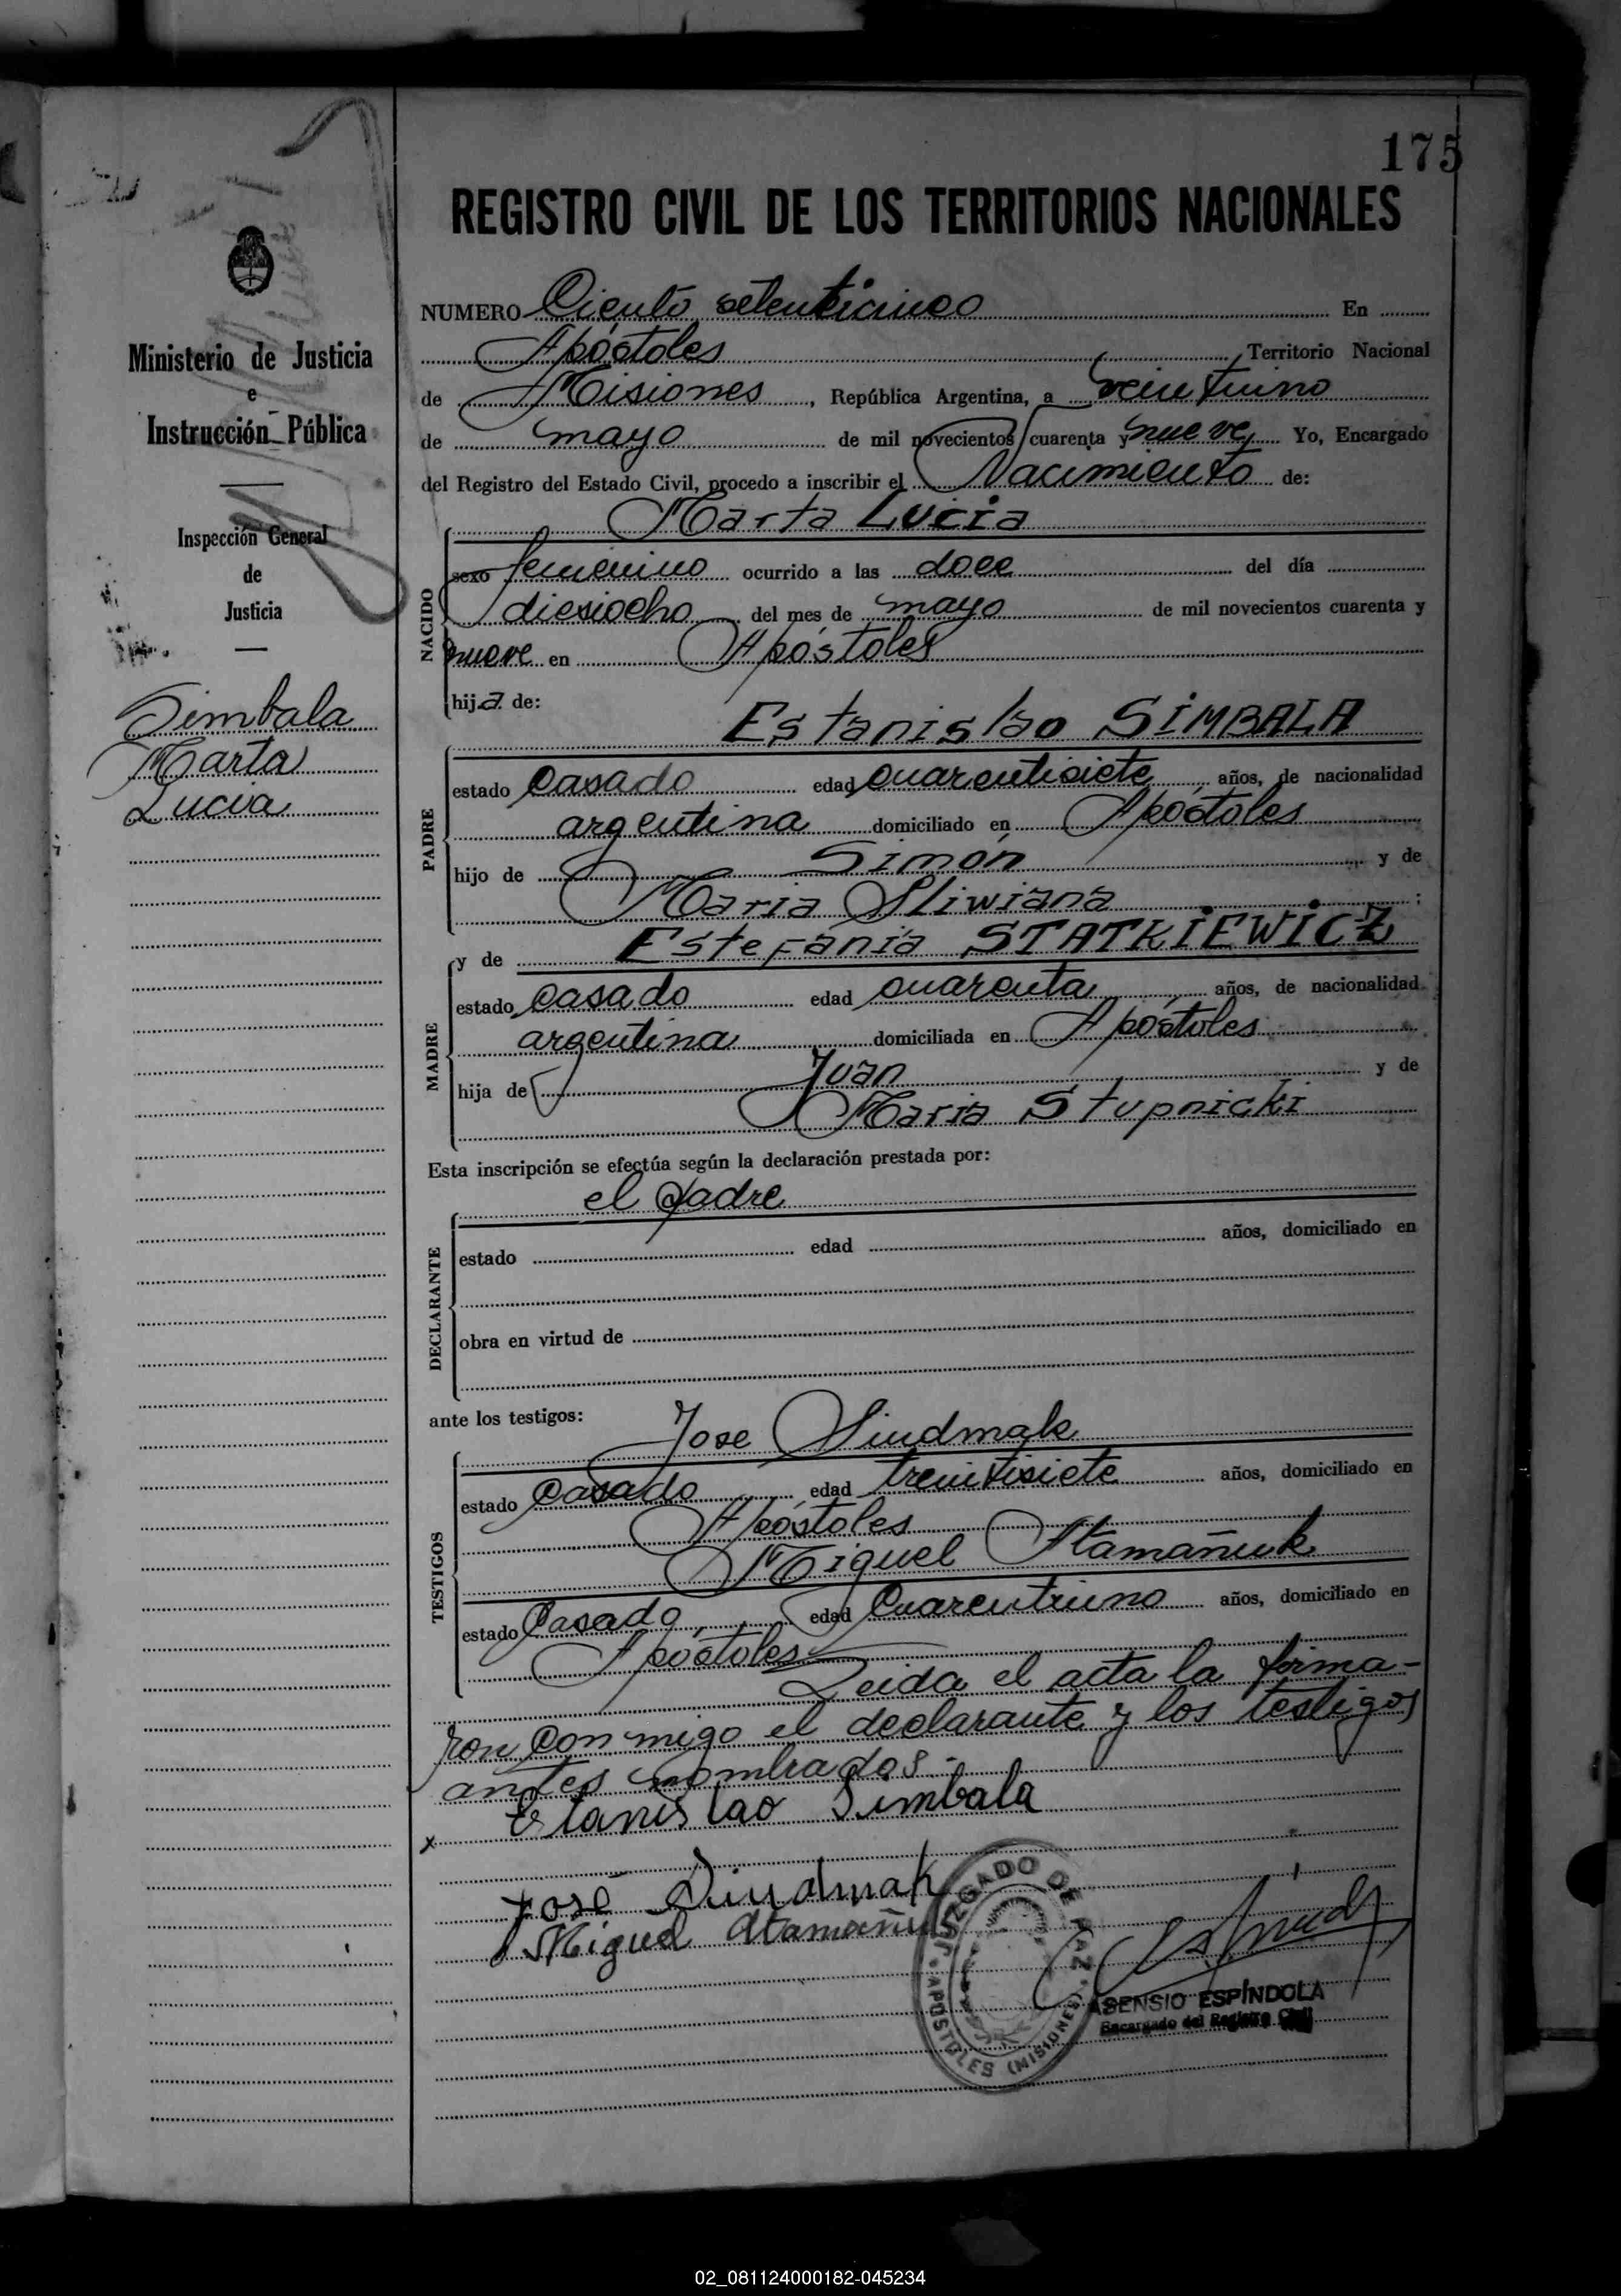 175
REGISTRO CIVIL DE LOS TERRITORIOS NACIONALES
Ministerio de Justicia
e
Instrucción Pública
Inspección General
de
Justicia
Simbala
Marta
Lucia
NUMERO Ciento setenticinco En
Apóstoles, Territorio Nacional
de Misiones, República Argentina, a veintiuno
de mayo de mil novecientos cuarenta y nueve, Yo, Encargado
del Registro del Estado Civil, procedo a inscribir el Nacimiento de:
Marta Lucia
NACIDO
sexo femenino ocurrido a las doce del día
diesiocho del mes de mayo de mil novecientos cuarenta y
nueve en Apóstoles
hija de:
Estanislao SIMBALA
PADRE
estado casado edad cuarentisiete años, de nacionalidad
argentina domiciliado en Apóstoles
hijo de Simón y de
Maria Sliwiana;
y de Estefania STATKIEWICZ
MADRE
estado casado edad cuarenta años, de nacionalidad
argentina domiciliada en Apóstoles
hija de Juan y de
Maria Stupnicki
Esta inscripción se efectúa según la declaración prestada por:
el padre
DECLARANTE
estado edad años, domiciliado en
obra en virtud de
ante los testigos:
Jose Sindmak
TESTIGOS
estado casado edad treintisiete años, domiciliado en
Apóstoles
Miguel Atamañuk
estado Casado, edad Cuarentiuno años, domiciliado en
Apóstoles
Leida el acta la firma-
ron con migo el declarante y los testigos
antes nombrados.-
x Estanislao Simbala
José Sindmak
Miguel Atamañuk
JUZGADO DE PAZ
APOSTOLES (MISIONES)
ASENSIO ESPÍNDOLA
Encargado del Registro Civil
02_081124000182-045234